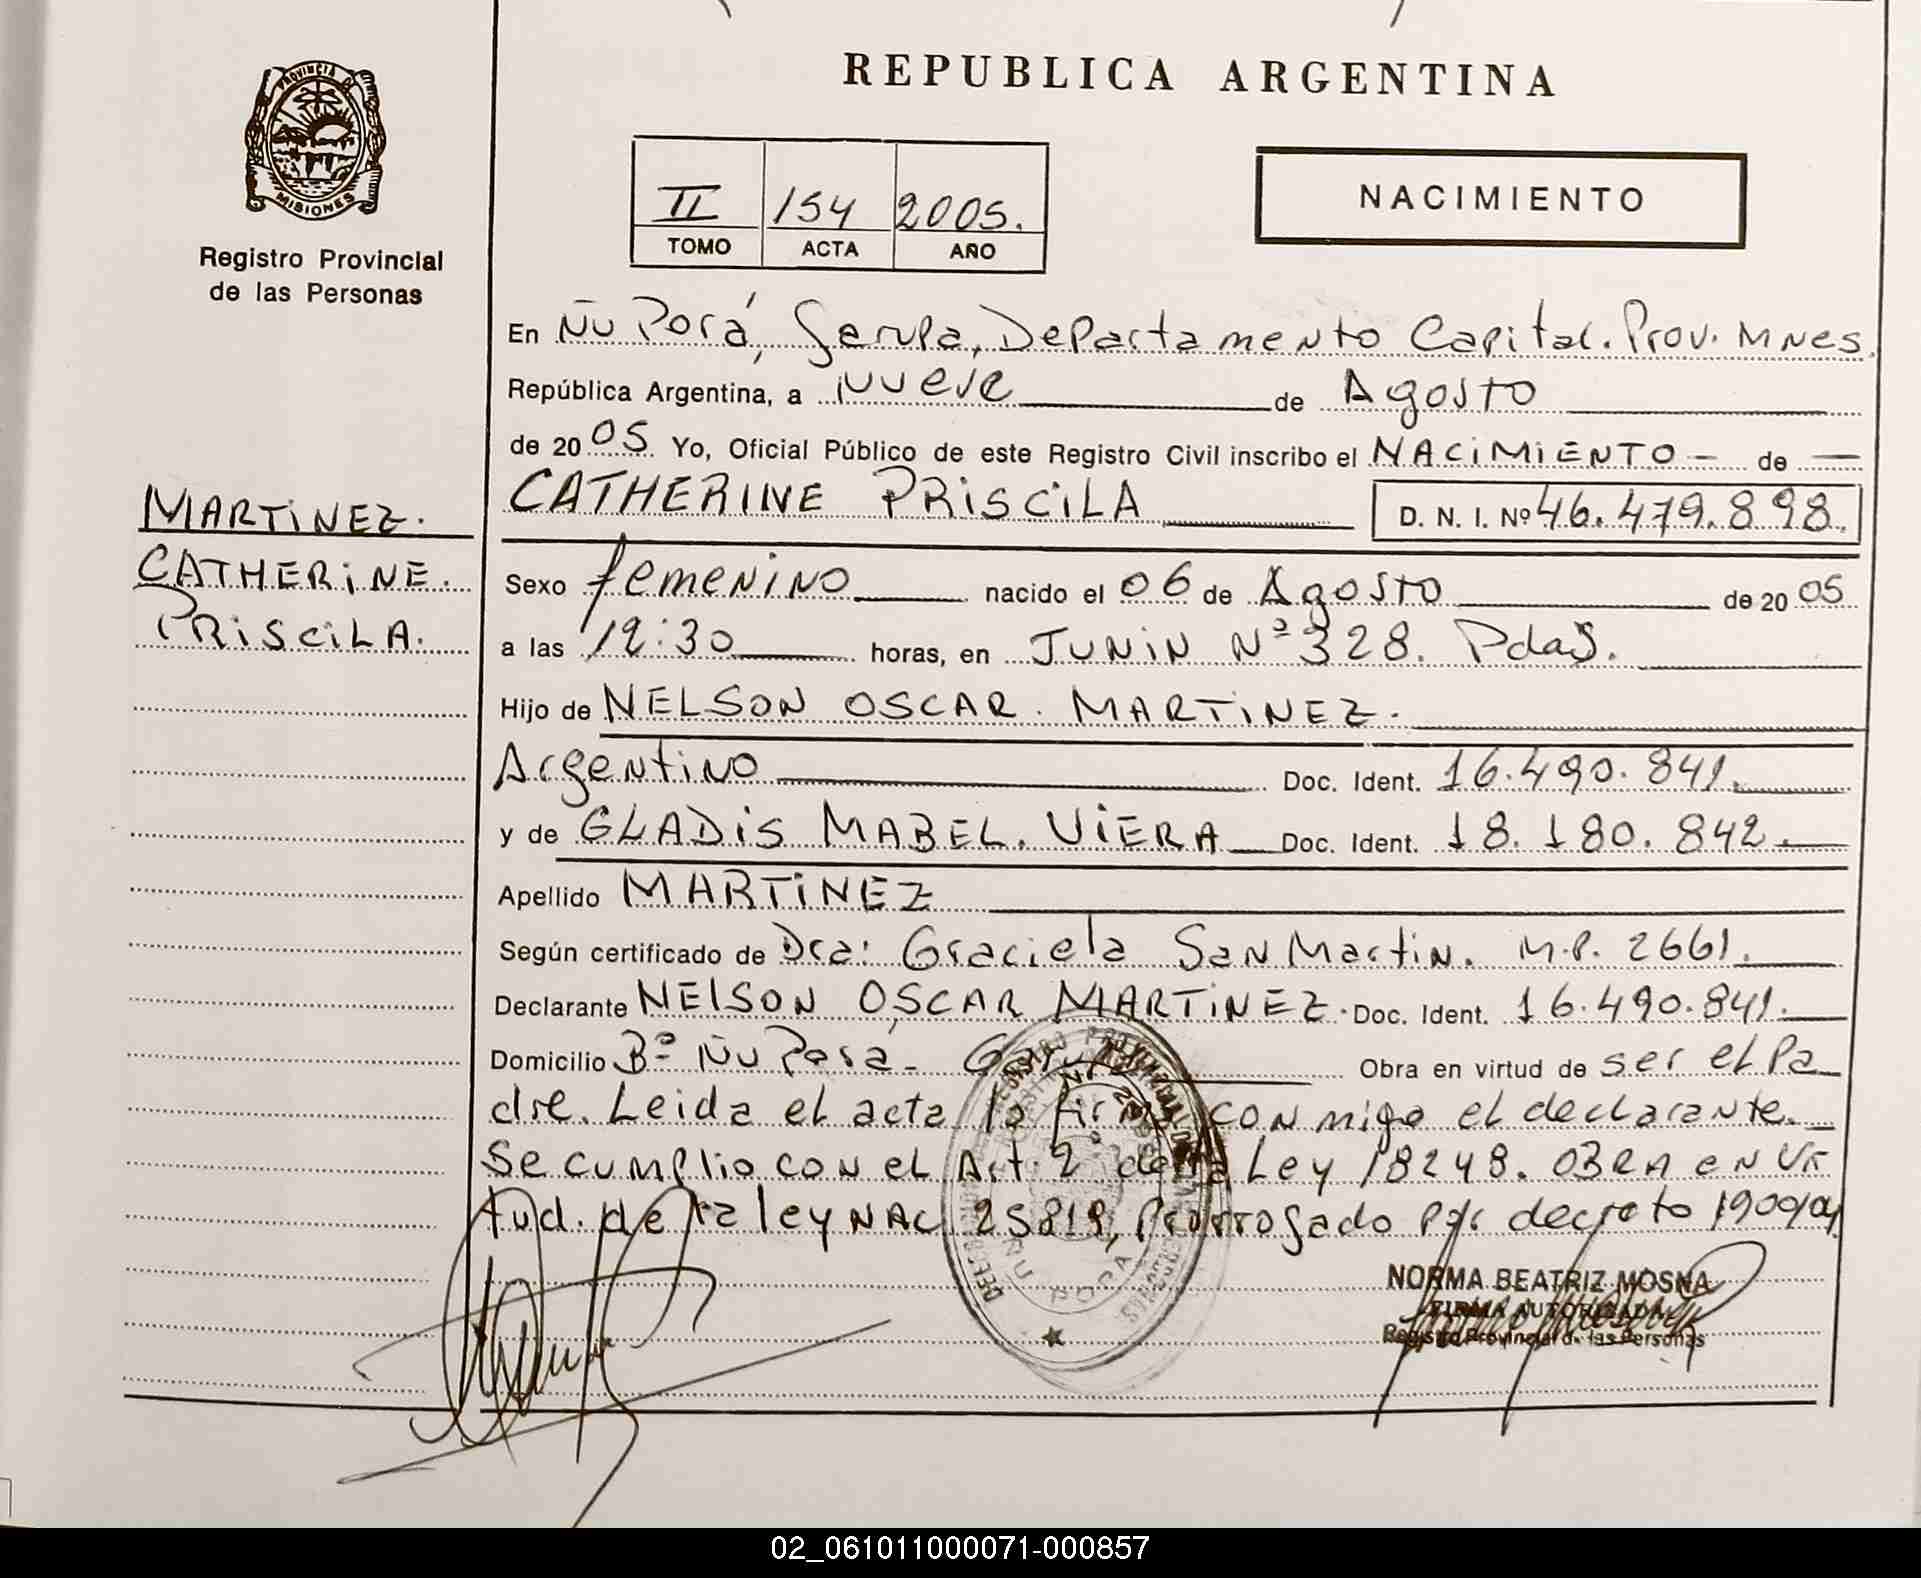 REPUBLICA ARGENTINA
PROVINCIA DE
MISIONES
Registro Provincial
de las Personas
II 154 2005.
TOMO ACTA AÑO
NACIMIENTO
En Ñu Porá, Garupa, Departamento Capital. Prov. Mnes.
República Argentina, a nueve de Agosto
de 2005 Yo, Oficial Público de este Registro Civil inscribo el NACIMIENTO - de
CATHERINE PRISCILA D. N. I. Nº 46.479.898.
MARTINEZ.
CATHERINE.
PRISCILA.
Sexo femenino nacido el 06 de Agosto de 2005
a las 12:30 horas, en JUNIN Nº 328. Pdas.
Hijo de NELSON OSCAR. MARTINEZ.
Argentino Doc. Ident. 16.490.841.
y de GLADIS MABEL. VIERA Doc. Ident. 18.180.842.
Apellido MARTINEZ
Según certificado de Dra: Graciela San Martin. M.P. 2661.
Declarante NELSON OSCAR MARTINEZ. Doc. Ident. 16.490.841.
Domicilio Bº Ñu Porá - Obra en virtud de ser el Pa
dre. Leida el acta la firma conmigo el declarante.
Se cumplio con el Art. 2 de la Ley 18248. OBRA en Vir
tud. de la ley NAC 25819, Prorrogado por decreto 1900/04
NORMA BEATRIZ MOSNA
FIRMA AUTORIZADA
Registro Provincial de las Personas
02_061011000071-000857